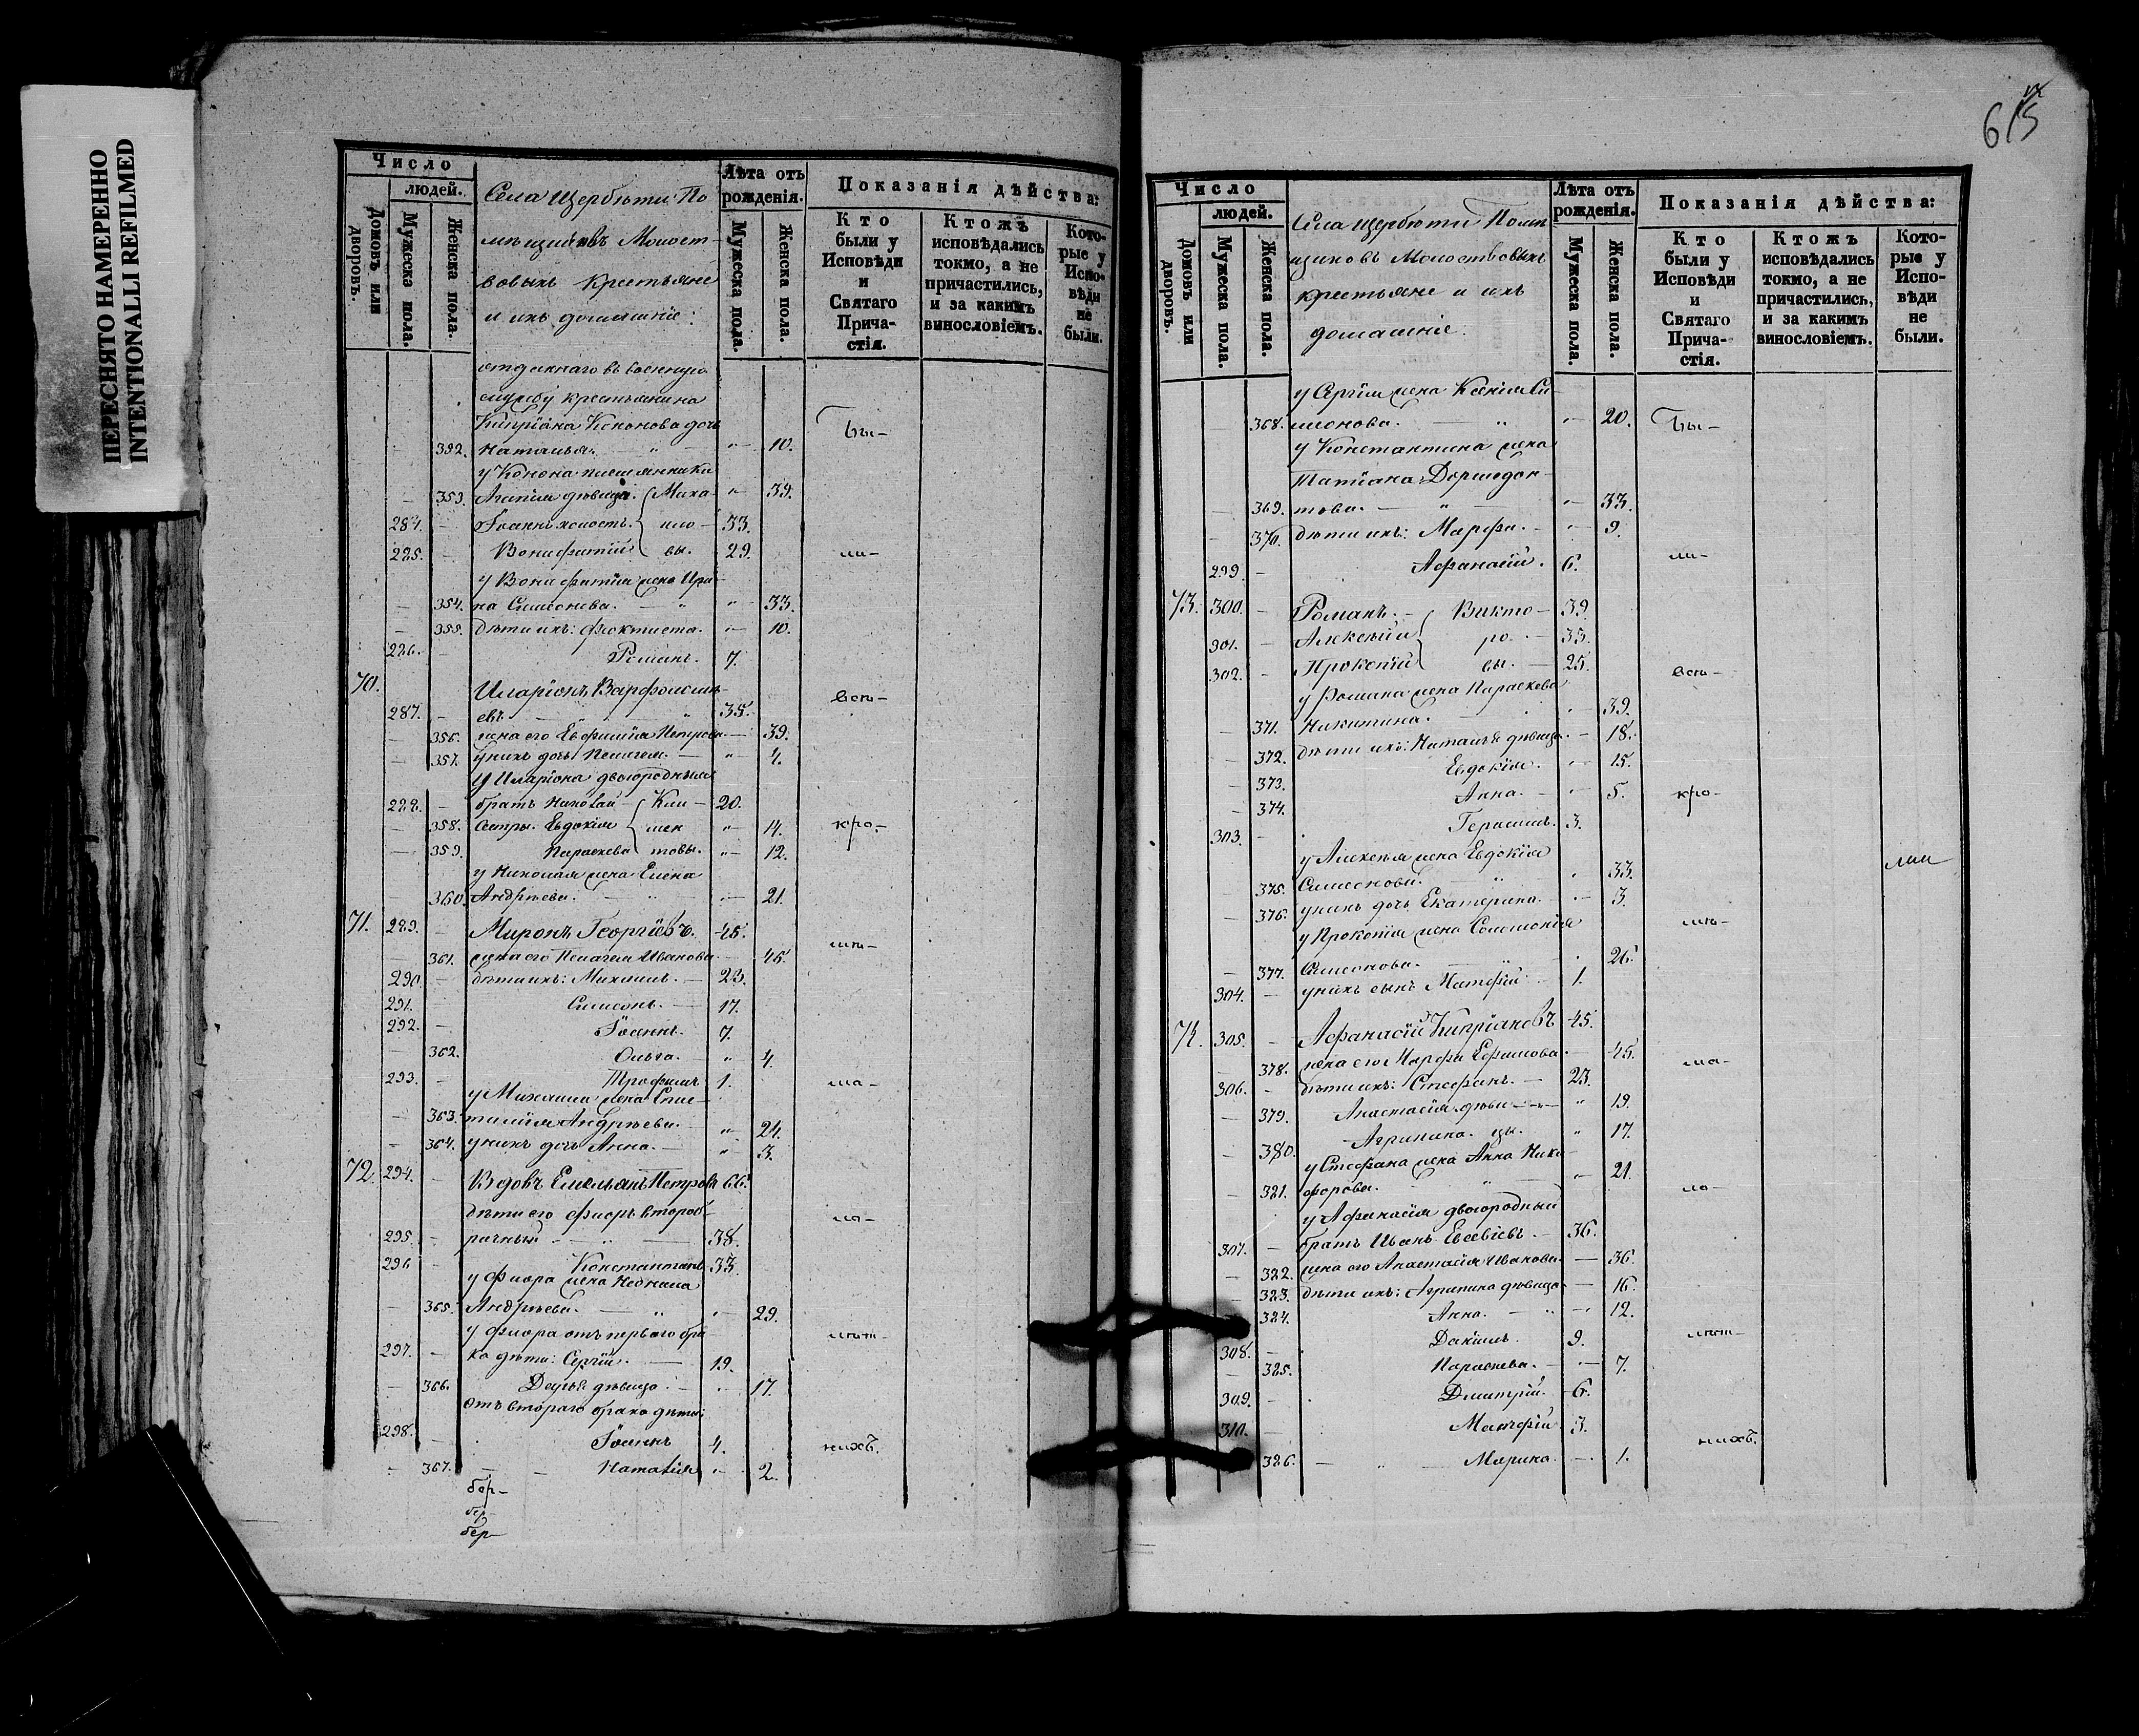 ПЕРЕСНЯТО НАМЕРЕННО
INTENTIONALLI REFILMED
Число
людей.
Домовъ или дворовъ.
Мужеска пола.
Женска пола.
Села Щербѣти По
мѣщиковъ Молост-
вовыхъ крестьяне
и ихъ домашніе:
Лѣта отъ
рожденія.
Мужеска пола.
Женска пола.
Показанія дѣйства:
Кто
были у
Исповѣди
и
Святаго
Прича-
стія.
Ктожъ
исповѣдались
токмо, а не
причастились,
и за какимъ
винословіемъ.
Кото-
рые у
Испо-
вѣди
не
были.
отданнаго въ военную
службу крестьянина
Кипріана Кононова дочь
Бы-
352. Наталья. " 10.
у Конона племянники
353. Агапія дѣвица. Миха- " 39.
284. Іоаннъ холостъ. ило- 33.
285. Вонифатій вы. 29.
ли-
у Вонифатія жена Ири-
354. на Симеонова. " 33.
355. дѣти ихъ: Феоктиста. " 10.
286. Романъ. 7.
70. Иларіонъ Варфоломе-
287. евъ 35.
всѣ-
356. жена его Евфимія Петрова 39.
357. у нихъ дочь Пелагея. " 4.
У Иларіона двоюродные
288. братъ Николай Кли- 20.
358. сестры. Евдокія мен " 14.
кро-
359. Параскева товы. " 12.
у Николая жена Елена
360. Андрѣева. " 21.
71. 289. Миронъ Георгіевъ. 45.
мѣ-
361. жена его Пелагея Иванова. 45.
290. дѣти ихъ: Михаилъ. 23.
291. Симеонъ. 17.
292. Іоаннъ. 7.
362. Ольга. " 4.
293. Трофимъ 1.
ма-
у Михаила жена Епис-
363. тимія Андрѣева. " 24.
364. у нихъ дочь Анна. " 3.
72. 294. Вдовъ Емельянъ Петровъ 66.
дѣти его Флоръ второб-
ло-
295. рачный " 38.
296 Константинъ 33.
у Флора жена Неонила
365. Андрѣева. " 29.
у Флора отъ перваго бра-
лѣт-
297. ка дѣти: Сергій. 19.
366. Дарья дѣвица. " 17.
Отъ втораго брака дѣти:
298. Іоаннъ 4.
нихъ.
367. Наталія " 2.
бер-
бер-
бер-
615
Число
людей.
Домовъ или дворовъ.
Мужеска пола.
Женска пола.
Села Щербѣти Помѣ
щиковъ Молоствовыхъ
крестьяне и ихъ
домашніе.
Лѣта отъ
рожденія.
Мужеска пола.
Женска пола.
Показанія дѣйства:
Кто
были у
Исповѣди
и
Святаго
Прича-
стія.
Ктожъ
исповѣдались
токмо, а не
причастились,
и за какимъ
винословіемъ.
Кото-
рые у
Испо-
вѣди
не
были.
у Сергія жена Ксенія Си-
368. меонова. " 20. Бы-
у Константина жена
Татіана Дормедон-
369. това. " 33.
370. дѣти ихъ: Марфа. " 9.
299. Афанасій. 6. ли-
73. 300. Романъ. Викто- 39.
301. Алексѣй ро 33.
302. Прокопій вы. 25. всѣ-
у Романа жена Параскева
371. Никитина. 39.
372. дѣти ихъ: Наталья дѣвица. 18.
373. Евдокія. " 15.
374. Анна. " 5. кро-
303. Герасимъ. 3.
у Алексѣя жена Евдокія
375. Симеонова. " 33.
376. у нихъ дочь Екатерина. 3.
у Прокопія жена Соломонія
мѣ-
377. Симеонова. 26.
304. у нихъ сынъ Матфій 1.
74. 305. Афанасій Кипріановъ 45.
378. жена его Марфа Ефимова. 45. ма-
306. дѣти ихъ: Стефанъ. 23.
379. Анастасія дѣви- " 19.
380. Агрипина. цы. " 17.
у Стефана жена Анна Ники-
321. форова. " 21. ло-
у Афанасія двоюродный
307. братъ Иванъ Евсевіевъ. 36.
322. жена его Анастасія Иванова. 36.
323. дѣти ихъ: Агрипина дѣвица 16.
324. Анна. " 12.
308. Даніилъ. 9. лѣт-
325. Параскева. 7.
309. Дмитрій. 6.
310. Матфій. 3. нихъ.
326. " Марина. 1.